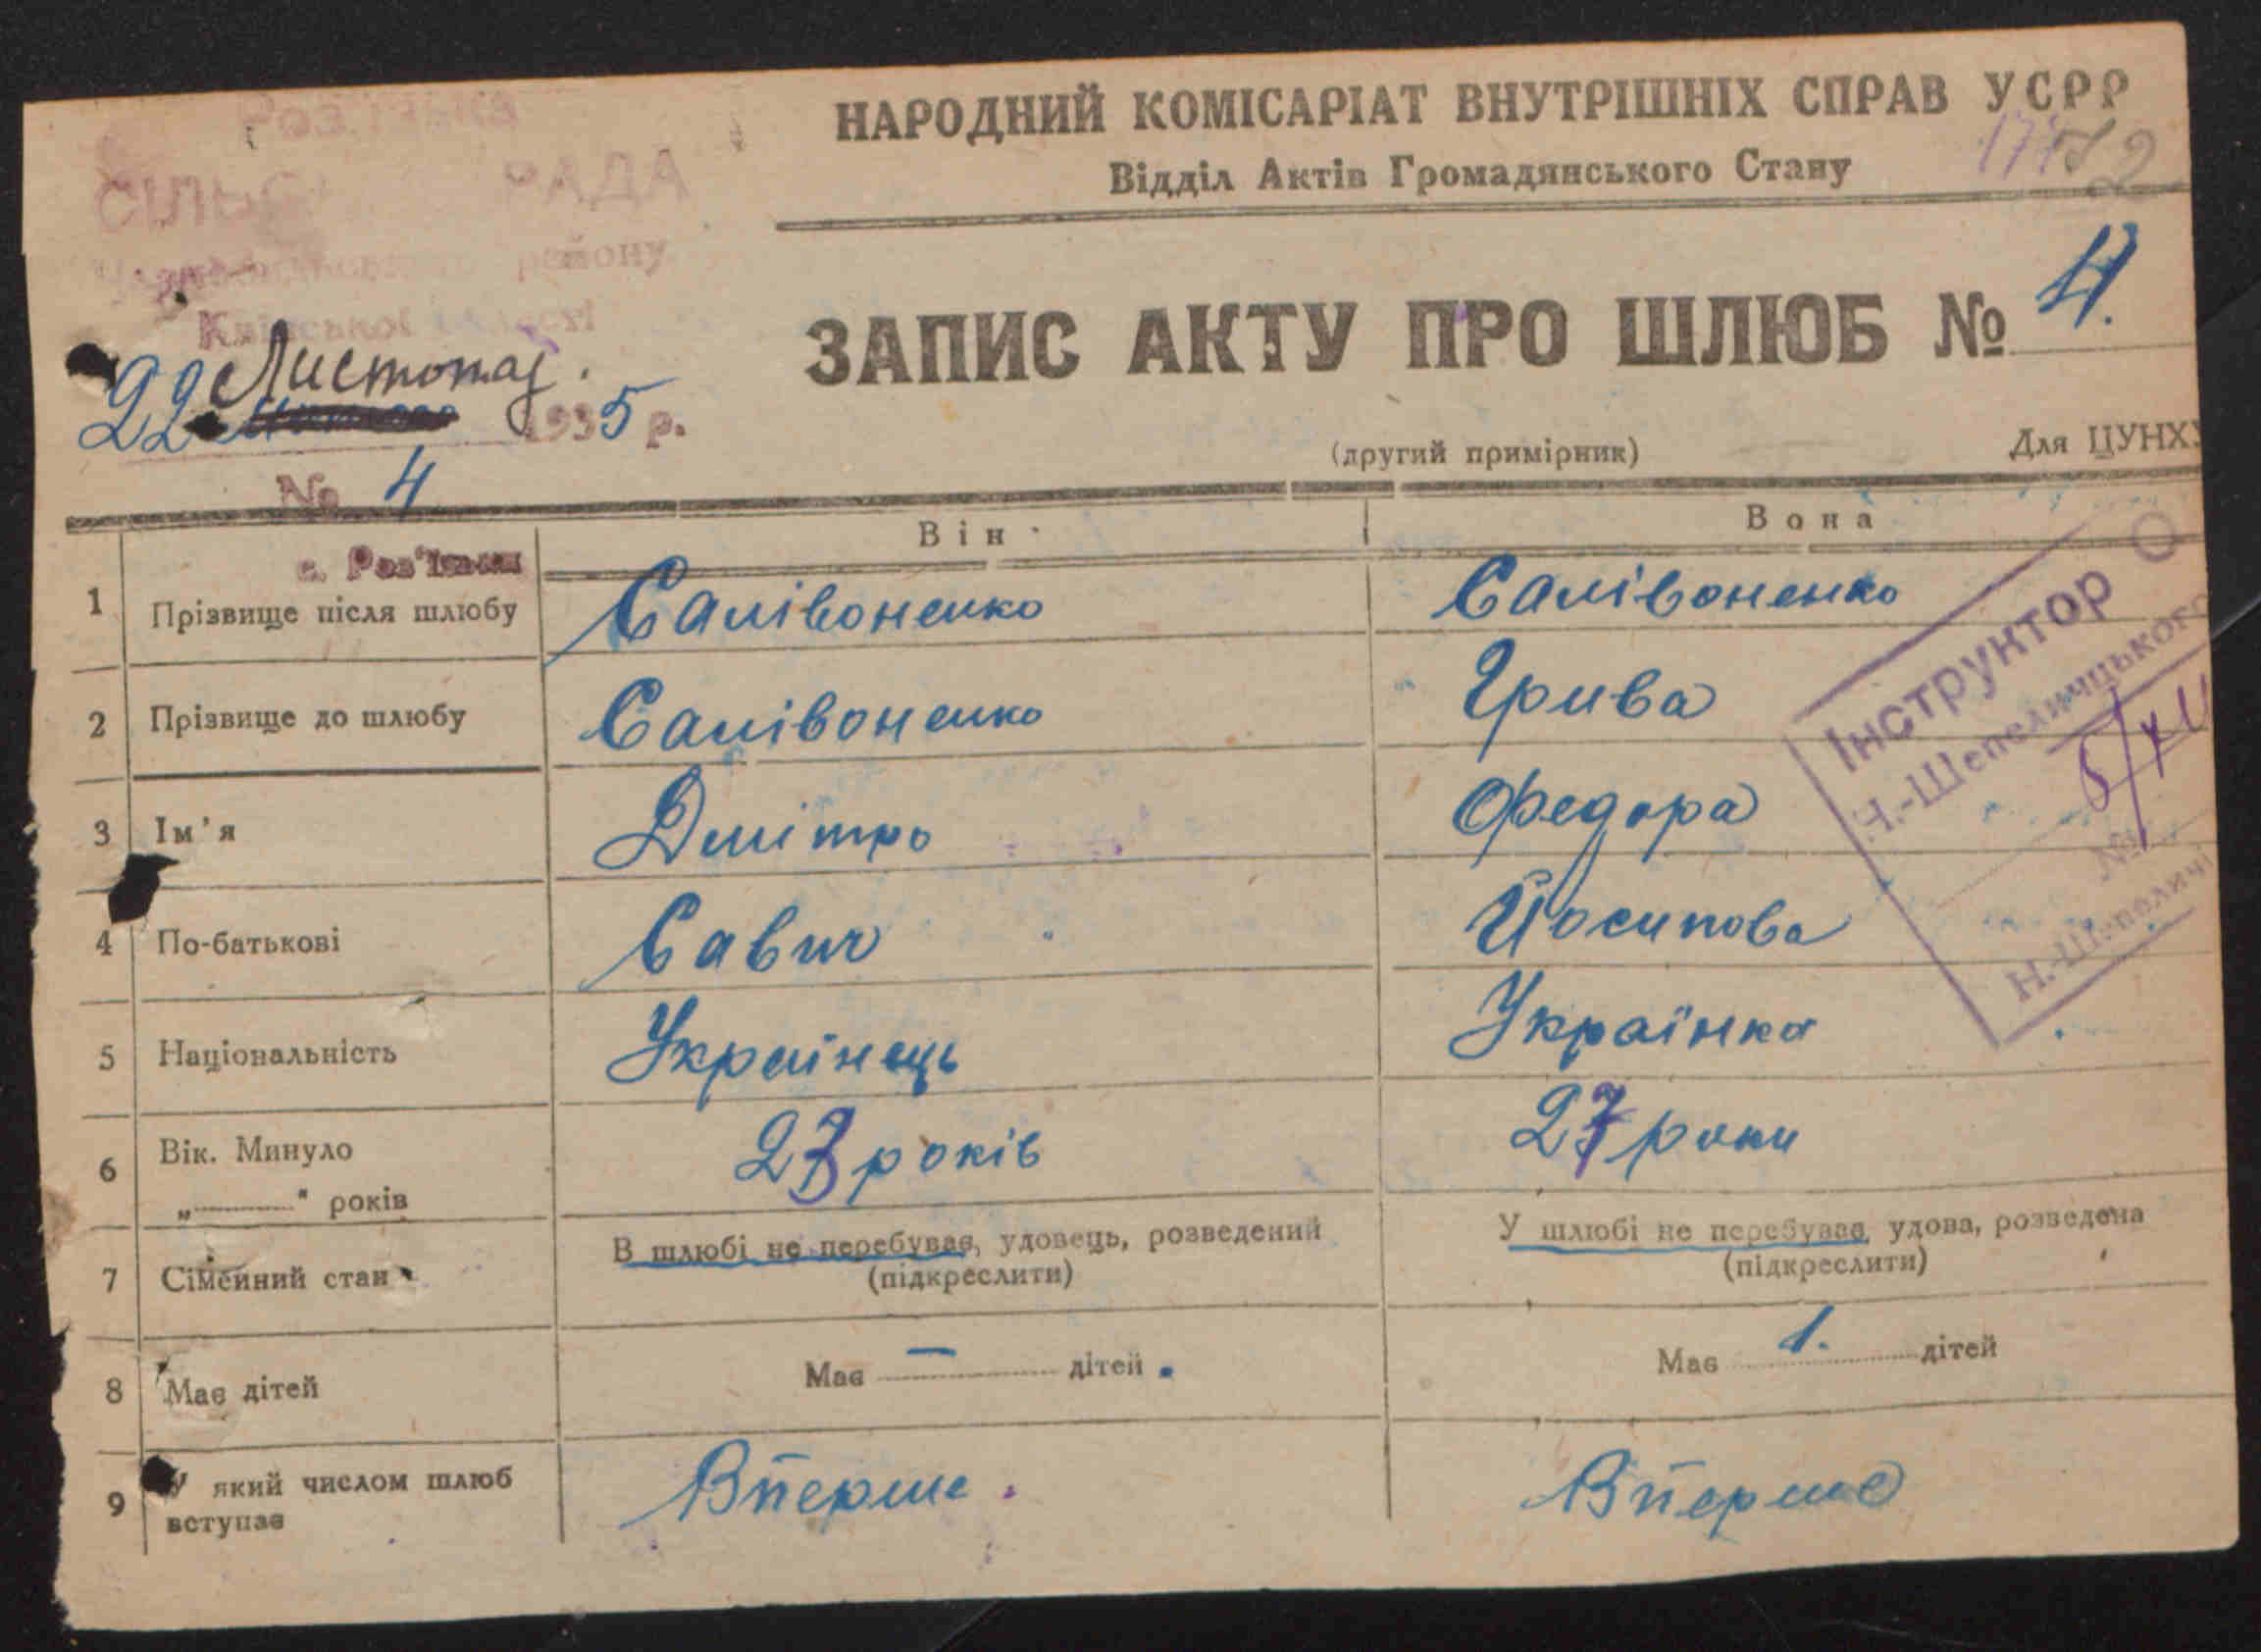 СІЛЬС РАДА
району
Київської області
22 Листопад.
1935 р.
№ 4
НАРОДНИЙ КОМІСАРІАТ ВНУТРІШНІХ СПРАВ УСРР
Відділ Актів Громадянського Стану
ЗАПИС АКТУ ПРО ШЛЮБ № 4.
(другий примірник)
Для ЦУНХУ
Він
Вона
с. Роз'їзжая
1 Прізвище після шлюбу Салівоненко Салівоненко
2 Прізвище до шлюбу Салівоненко Грива
3 Ім'я Дмітро Федора
4 По-батькові Савич Йосипова
5 Національність Українець Українка
6 Вік. Минуло „ “ років 23 років 27 роки
7 Сімейний стан В шлюбі не перебуває, удовець, розведений У шлюбі не перебуває, удова, розведена
(підкреслити) (підкреслити)
8 Має дітей Має — дітей. Має 1. дітей
9 У який числом шлюб Вперше. Вперше
вступає
Інструктор
Н.-Шепеличцького
5/XII
№
Н.-Шепеличі